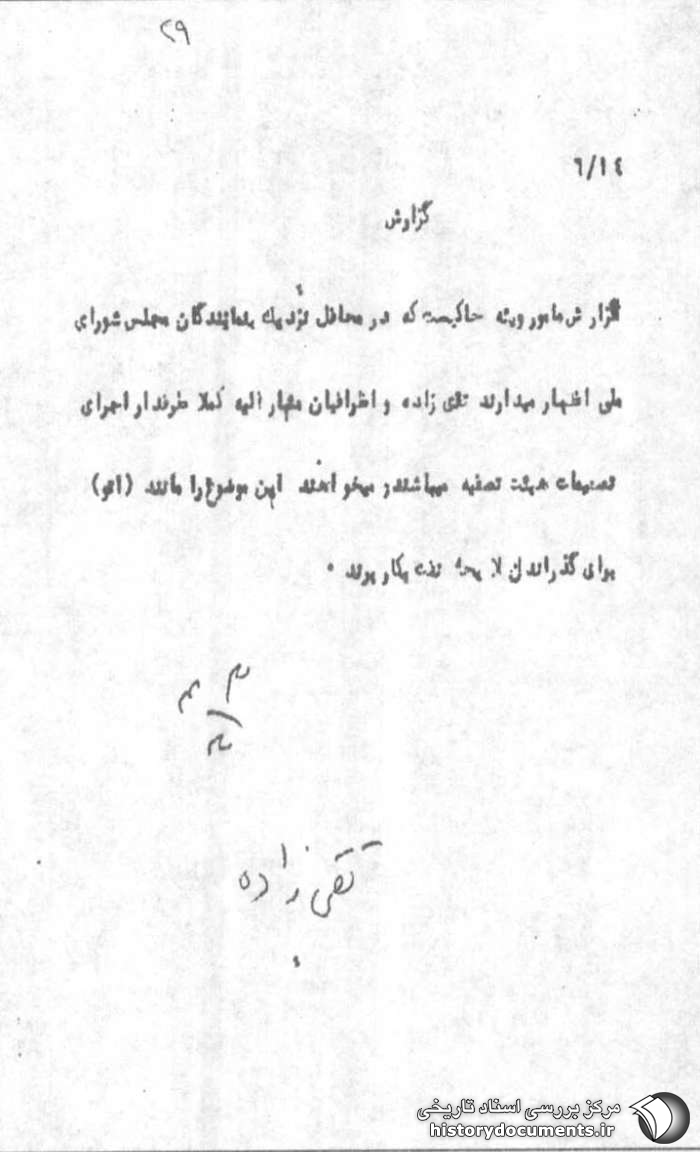 ۲۹
٦/١٤
گزارش
گزارش مامور ویژه حاکیست که در محافل نزدیک بنمایندگان مجلس شورای
ملی اظهار میدارند تقی زاده و اطرافیان مشار الیه کملا طرفدار اجرای
تصمیمات هیئت تصفیه میباشند و میخواهند این موضوع را مانند (اتو)
برای گذراندن لایحه نفت بکار برند .
تقی زاده
مرکز بررسی اسناد تاریخی
historydocuments.ir